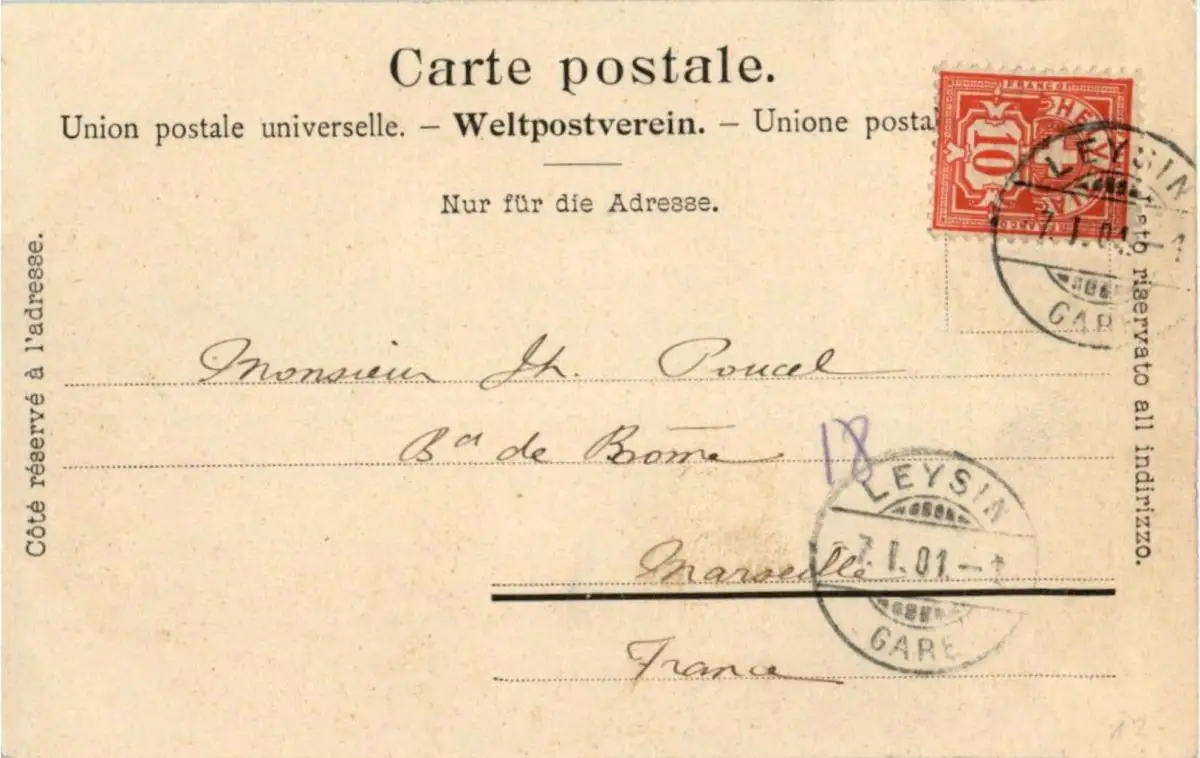 Carte postale.
Union postale universelle. – Weltpostverein. – Unione posta
Nur für die Adresse.
Côté réservé à l'adresse.
riservato all indirizzo.
FRANCO
HELVETIA
10
FRANCO
LEYSIN
7.I.01.–1
GARE
Monsieur Th. Poucel
Bd de Rome
18
LEYSIN
7.I.01.–1
GARE
Marseille
France
12